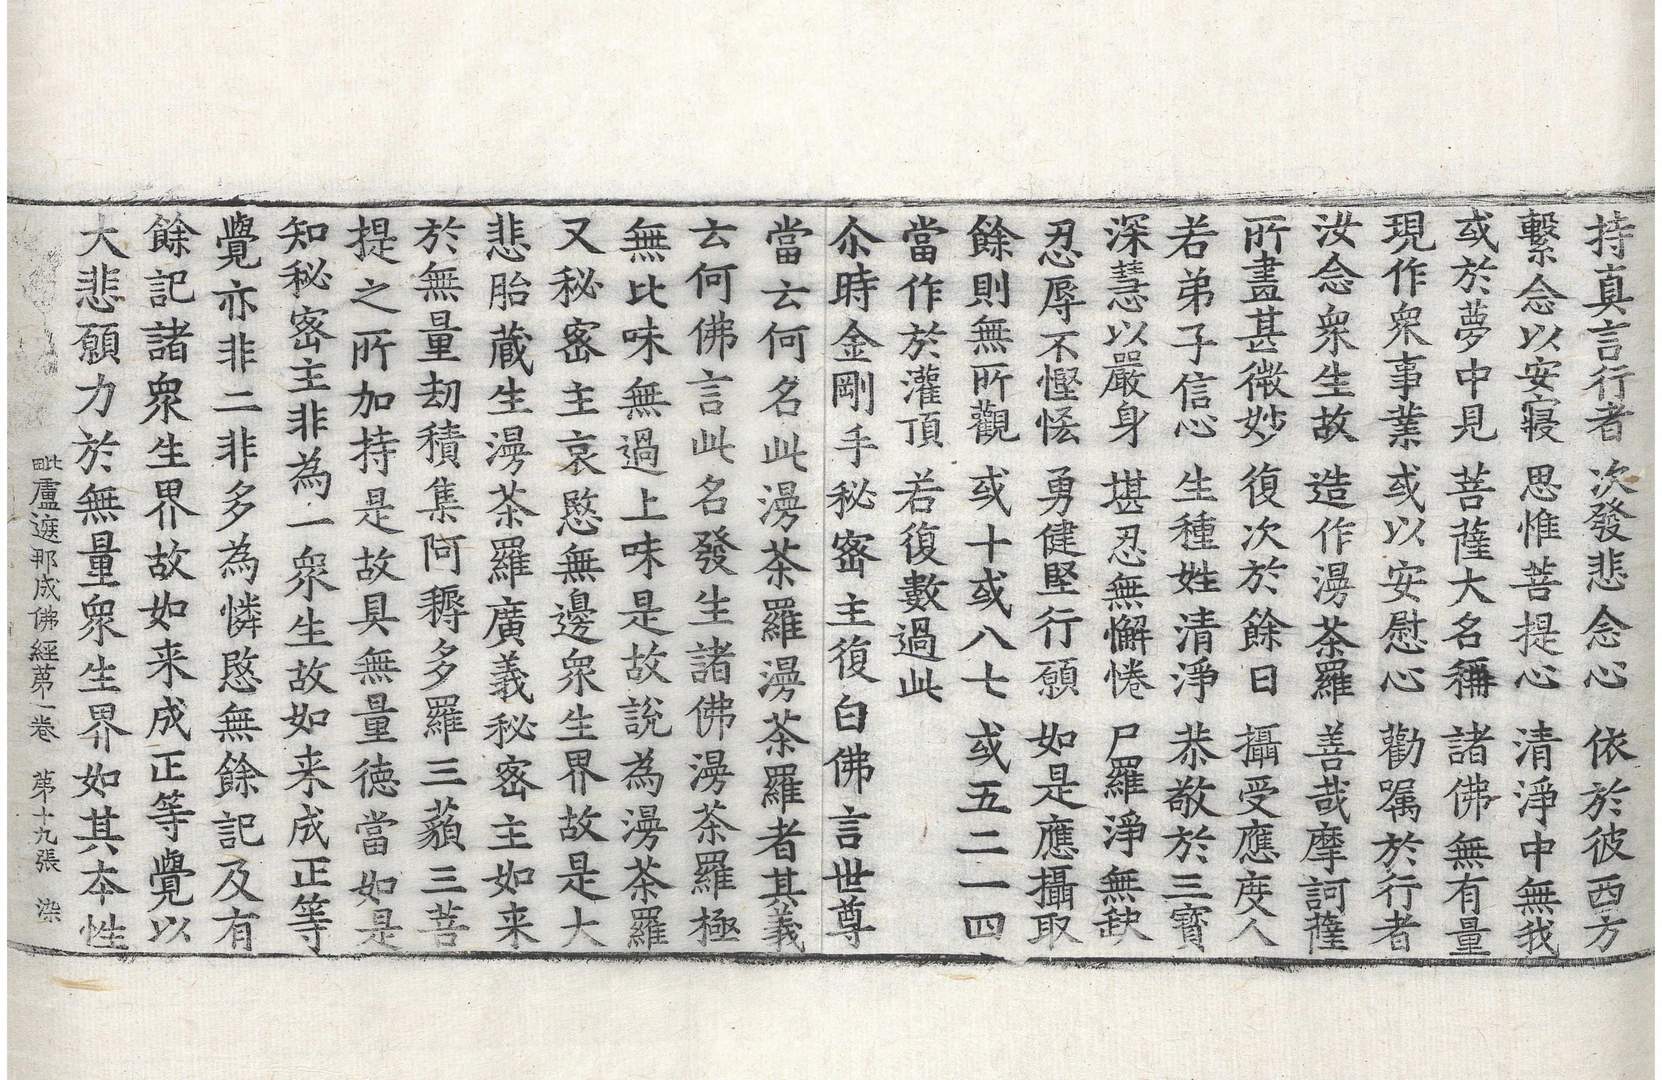 持真言行者　次發悲念心　依於彼西方
繫念以安寢　思惟菩提心　清淨中無我
或於夢中見　菩薩大名稱　諸佛無有量
現作衆事業　或以安慰心　勸囑於行者
汝念衆生故　造作漫荼羅　善哉摩訶薩
所畫甚微妙　復次於餘日　攝受應度人
若弟子信心　生種姓清淨　恭敬於三寶
深慧以嚴身　堪忍無懈惓　尸羅淨無缺
忍辱不慳悋　勇健堅行願　如是應攝取
餘則無所觀　或十或八七　或五二一四
當作於灌頂　若復數過此
尒時金剛手秘密主復白佛言世尊
當云何名此漫荼羅漫荼羅者其義
云何佛言此名發生諸佛漫荼羅極
無比味無過上味是故說為漫荼羅
又秘密主哀愍無邊衆生界故是大
悲胎藏生漫荼羅廣義秘密主如来
於無量劫積集阿耨多羅三藐三菩
提之所加持是故具無量德當如是
知秘密主非為一衆生故如来成正等
覺亦非二非多為憐愍無餘記及有
餘記諸衆生界故如来成正等覺以
大悲願力於無量衆生界如其夲性
毗盧遮那成佛經第一卷　第十九張　染